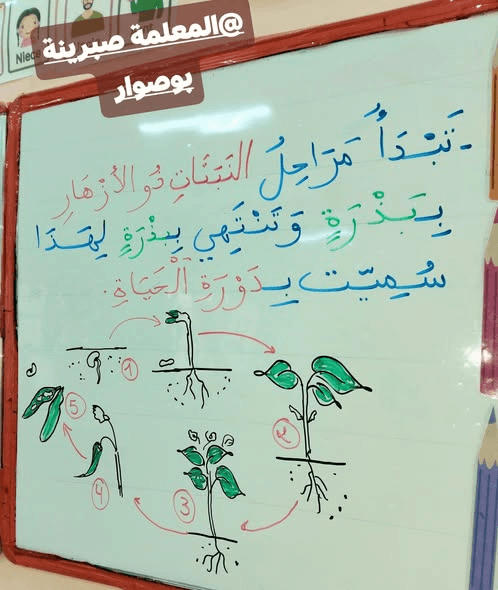 Niece
@المعلمة صبرينة
بوصوار
- تَبْدَأُ مَرَاحِلُ النَبَتَاتِ ذُو الأَزْهَارِ
بِبَذْرَةٍ وَتَنْتَهِي بِبِذْرَةٍ لِهَذَا
سُمِيَّت بِدَوْرَةِ الْحَيَاةِ.
1
2
3
4
5